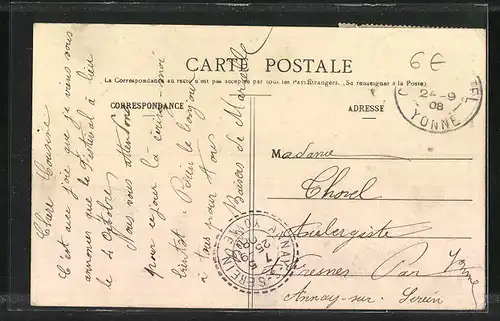 6€
CARTE POSTALE
La Correspondance au recto n'est pas acceptée par tous les Pays Étrangers. (Se renseigner à la Poste)
CORRESPONDANCE
ADRESSE
24-9
08
YONNE
Chère Cousine
C'est avec joie que je viens vous
annoncer que le Festival à lieu
le 4 Octobre
Nous vous attendons
pour ce jour là
bientôt. Pour le
à tous pour tous
Baisers de Marcelle
Madame
Chorel
Aubergiste
à Fresnes Par Yonne
Annay-sur-Serein
ANNAY-S-SEREIN
YONNE
25-9
08